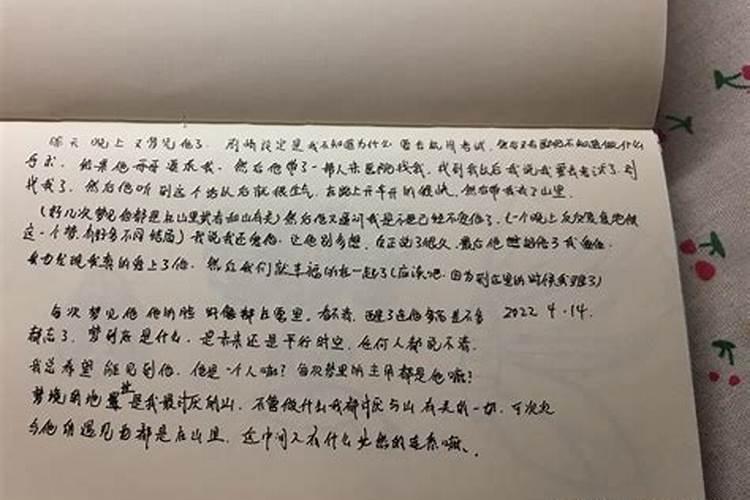 昨天晚上又梦见他了. 剧情设定是我不知道为什么要去执用考试, 然后又去医院不知道做什么
手术. 结果他哥哥逼我. 然后他带了一帮人来医院找我, 找到我以后我说我要去考试了. 别
找我了. 然后他听到这个话以后就很生气, 在路上开车开的很快, 然后带我去了山里.
(好几次梦见他都是在山里或者和山有关) 然后他又逼问我是不是已经不爱他了, (一个晚上反反复复地做
这一个梦, 有好多不同结局) 我说我还爱他. 让他别多想, 说了很久, 最后他
发现我真的爱上了他. 然后我们就幸福的在一起了(应该吧. 因为到这里的时候我醒了)
每次梦见他 他的脸 好像都在雾里. 看不清. 醒了连他多高是不多 2022 4.14.
都忘了. 梦到底是什么. 是未来还是平行时空, 任何人都说不清.
我总希望 能见到他, 他是一个人嘛? 每次梦里的主角都是他嘛?
梦境的地 是我最讨厌的山. 不管做什么我都讨厌与山有关的一切. 可次次
与他相遇见面都是在山里. 这中间又有什么必然的连系嘛..